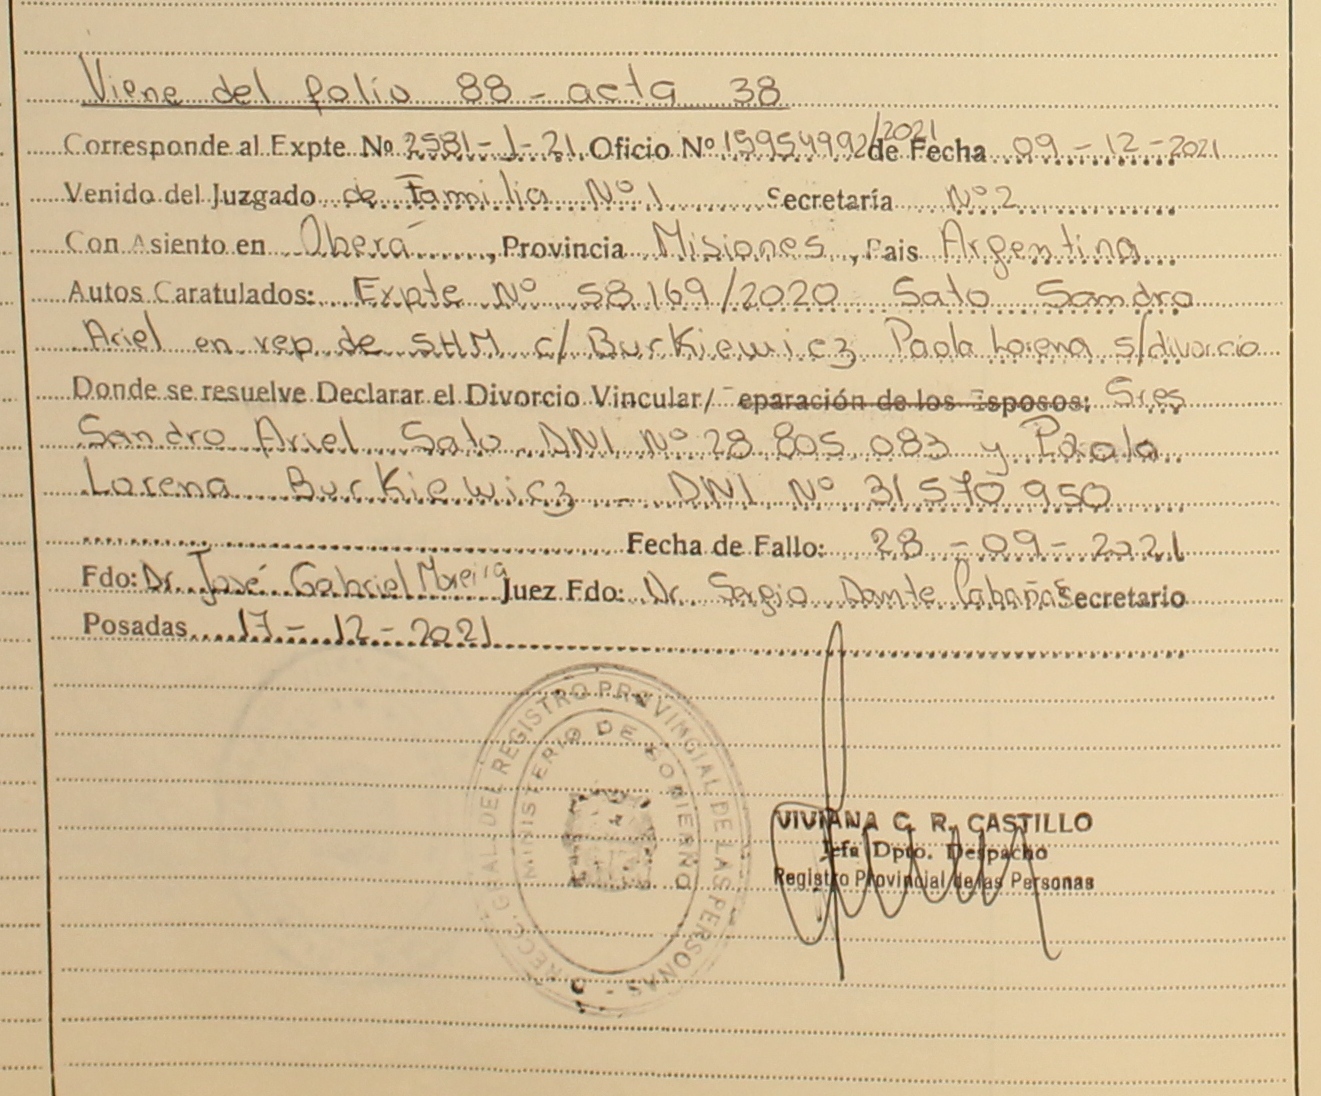 Viene del folio 88 - acta 38
Corresponde al Expte Nº 2581-1-21 Oficio Nº 15954992/2021 de Fecha 09-12-2021
Venido del Juzgado de Familia Nº 1 Secretaría Nº 2
Con Asiento en Oberá, Provincia Misiones, Pais Argentina
Autos Caratulados: Expte Nº 58169/2020 Sato Sandro
Ariel en rep de SHM c/ Burkiewicz Paola Lorena s/divorcio
Donde se resuelve Declarar el Divorcio Vincular/ eparación de los Esposos: Sres
Sandro Ariel Sato DNI Nº 28.805.083 y Paola
Lorena Burkiewicz - DNI Nº 31570950
Fecha de Fallo: 28-09-2021
Fdo: Dr. José Gabriel Moreira Juez Fdo: Dr. Sergio Dante Cabañas Secretario
Posadas 17-12-2021
DIRECC. GRAL. DEL REGISTRO PROVINCIAL DE LAS PERSONAS
MINISTERIO DE GOBIERNO
VIVIANA C. R. CASTILLO
Jefa Dpto. Despacho
Registro Provincial de las Personas